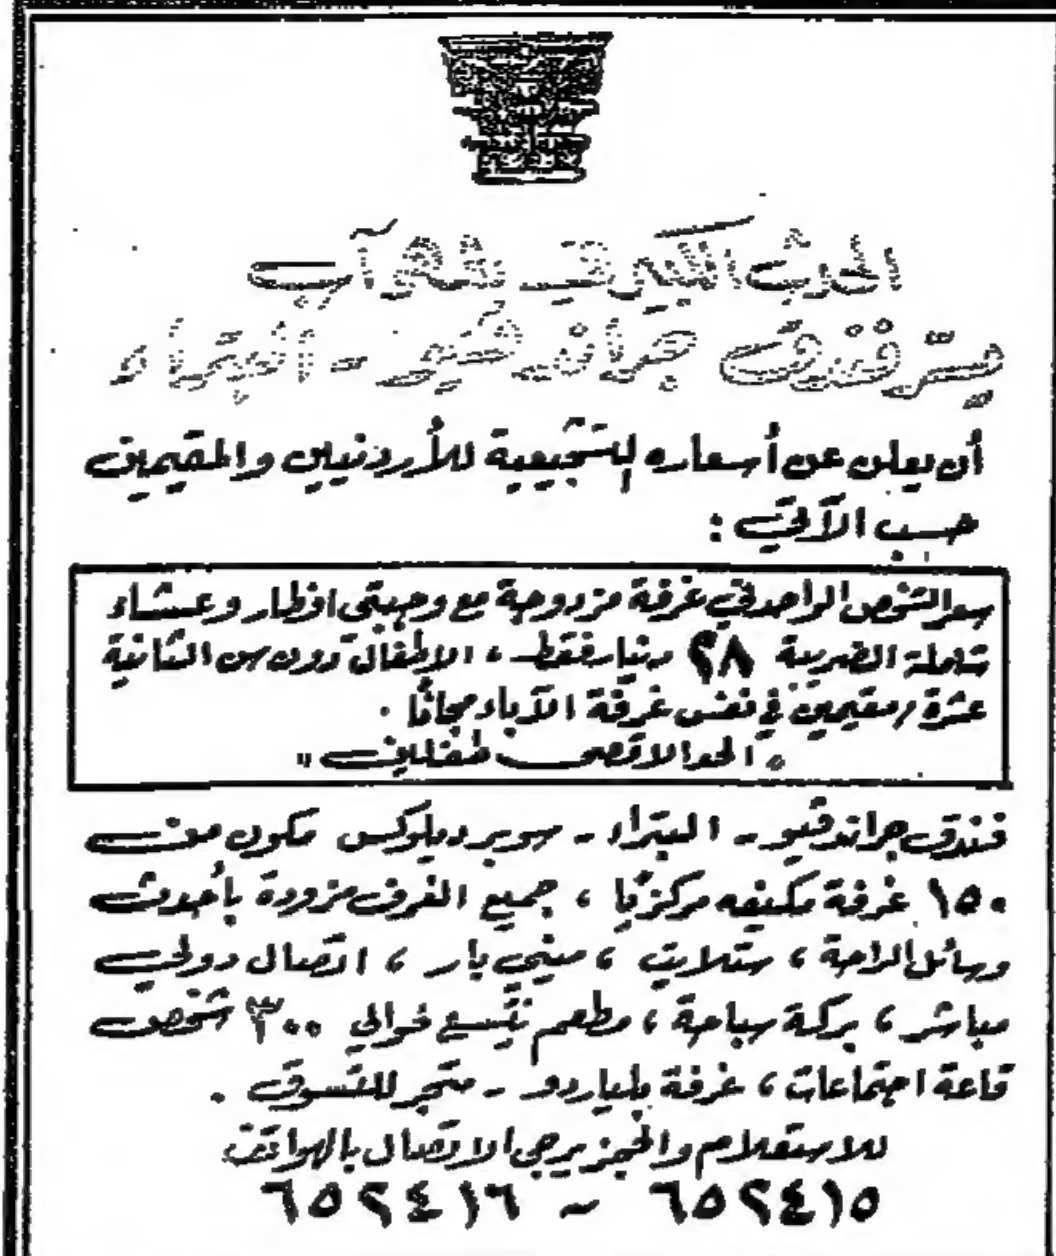 الحدث الكبير في شهر آب
يسر فندق جراند فيو - البتراء
أن يعلن عن أسعاره التشجيعية للأردنيين والمقيمين
حسب الآتي :
سعر الشخص الواحد في غرفة مزدوجة مع وجبتي افطار وعشاء
شاملة الضريبة ٢٨ دينار فقط ، الاطفال دون سن الثانية
عشرة / مقيمين في نفس غرفة الآباء مجانًا .
" الحد الاقصى طفلين "
فندق جراند فيو - البتراء - سوبر ديلوكس مكون من
١٥٠ غرفة مكيفه مركزيًا ، جميع الغرف مزودة بأحدث
وسائل الراحة ، ستلايت ، ميني بار ، اتصال دولي
مباشر ، بركة سباحة ، مطعم يتسع لحوالي ٣٠٠ شخص
قاعة اجتماعات ، غرفة بلياردو - متجر للتسوق .
للاستعلام والحجز يرجى الاتصال بالهواتف
٦٥٢٤١٥ - ٦٥٢٤١٦